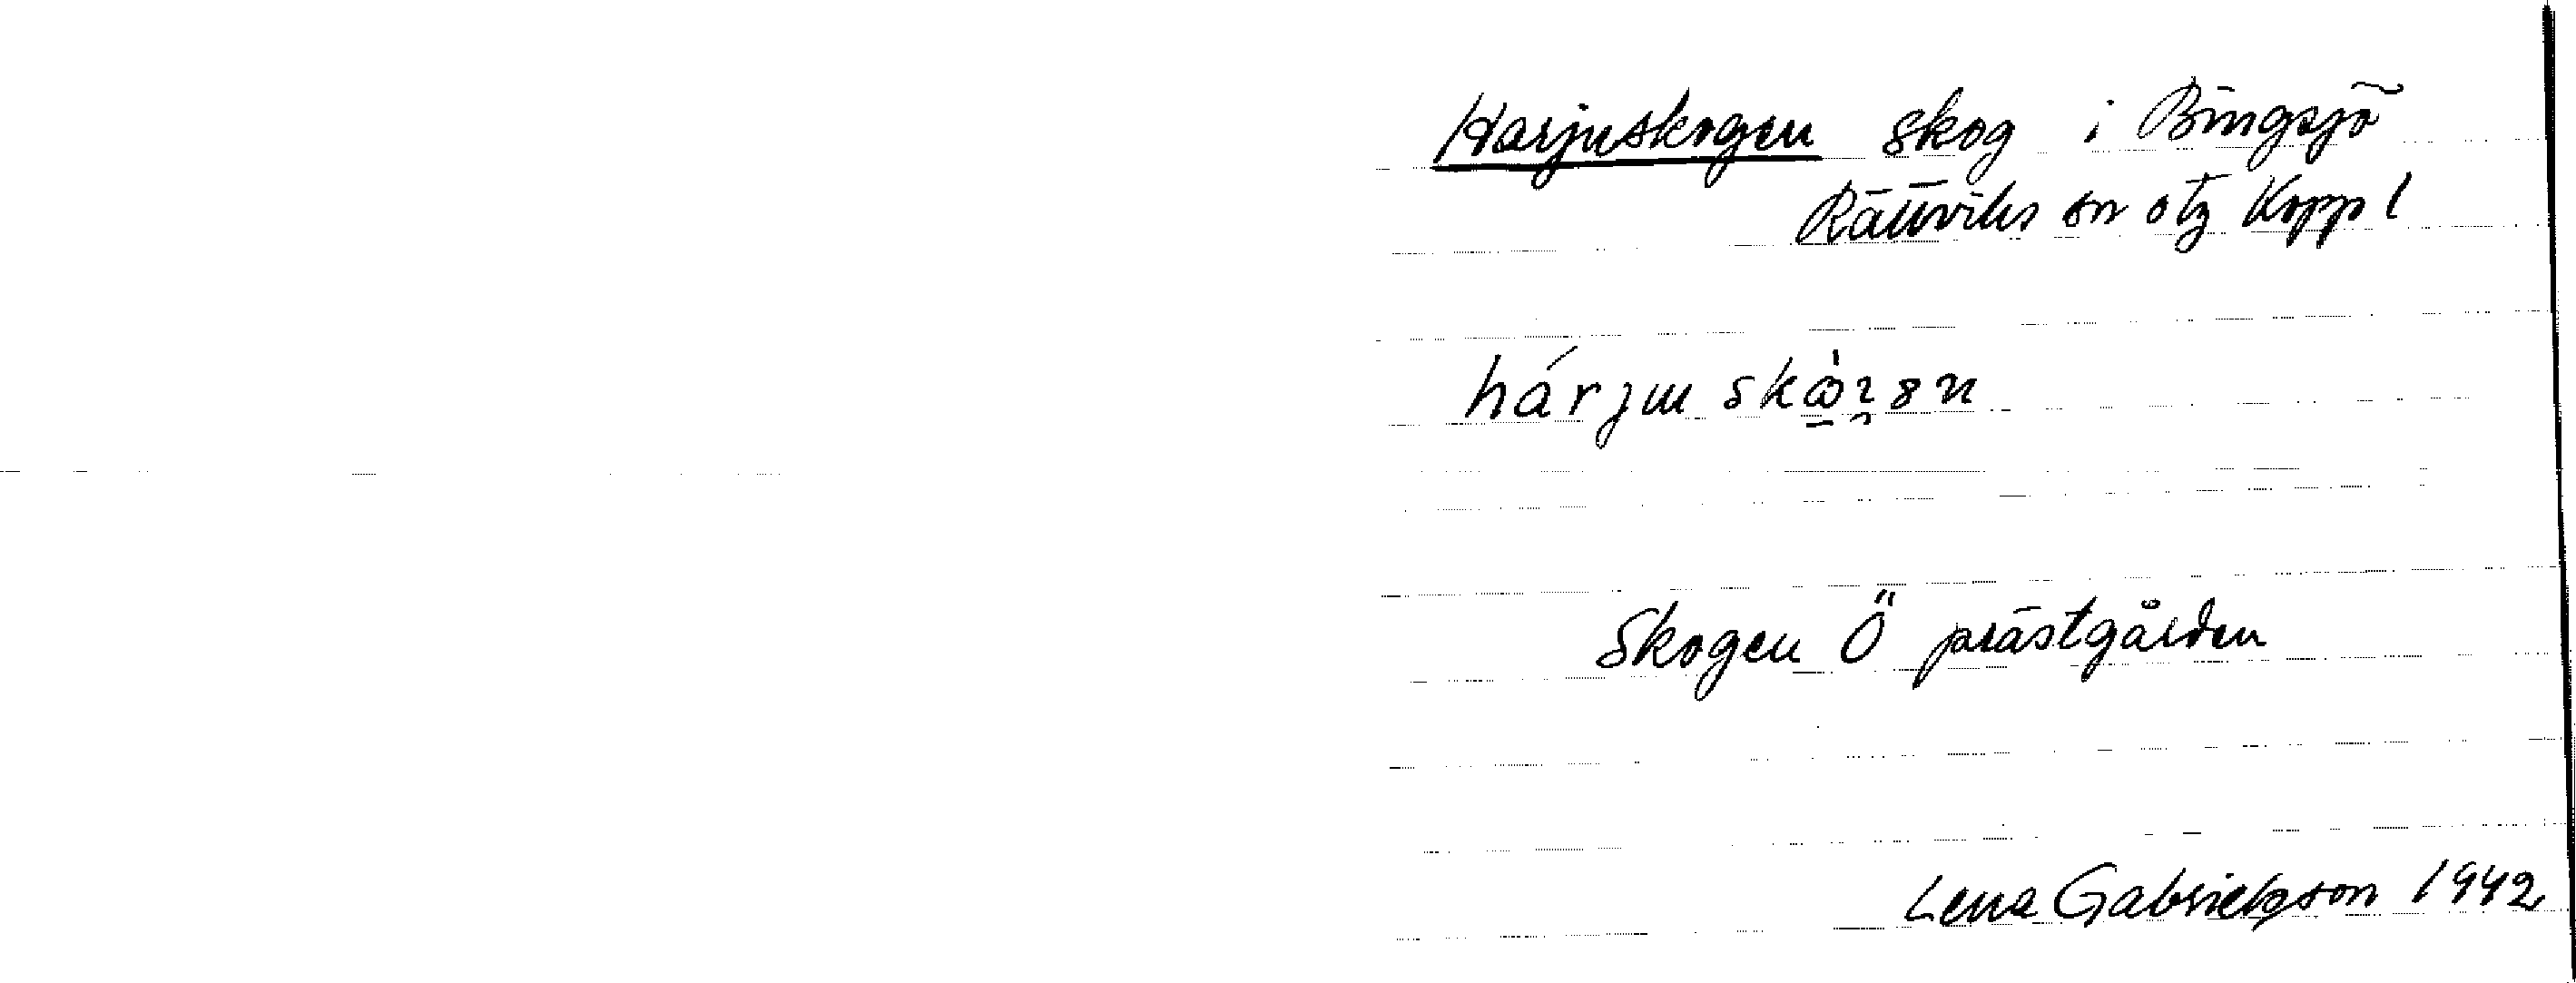 Harjuskogen skog i Bingsjö
Rättviks sn otz Koppl
Skogen Ö prästgården
Lena Gabrielsson 1942